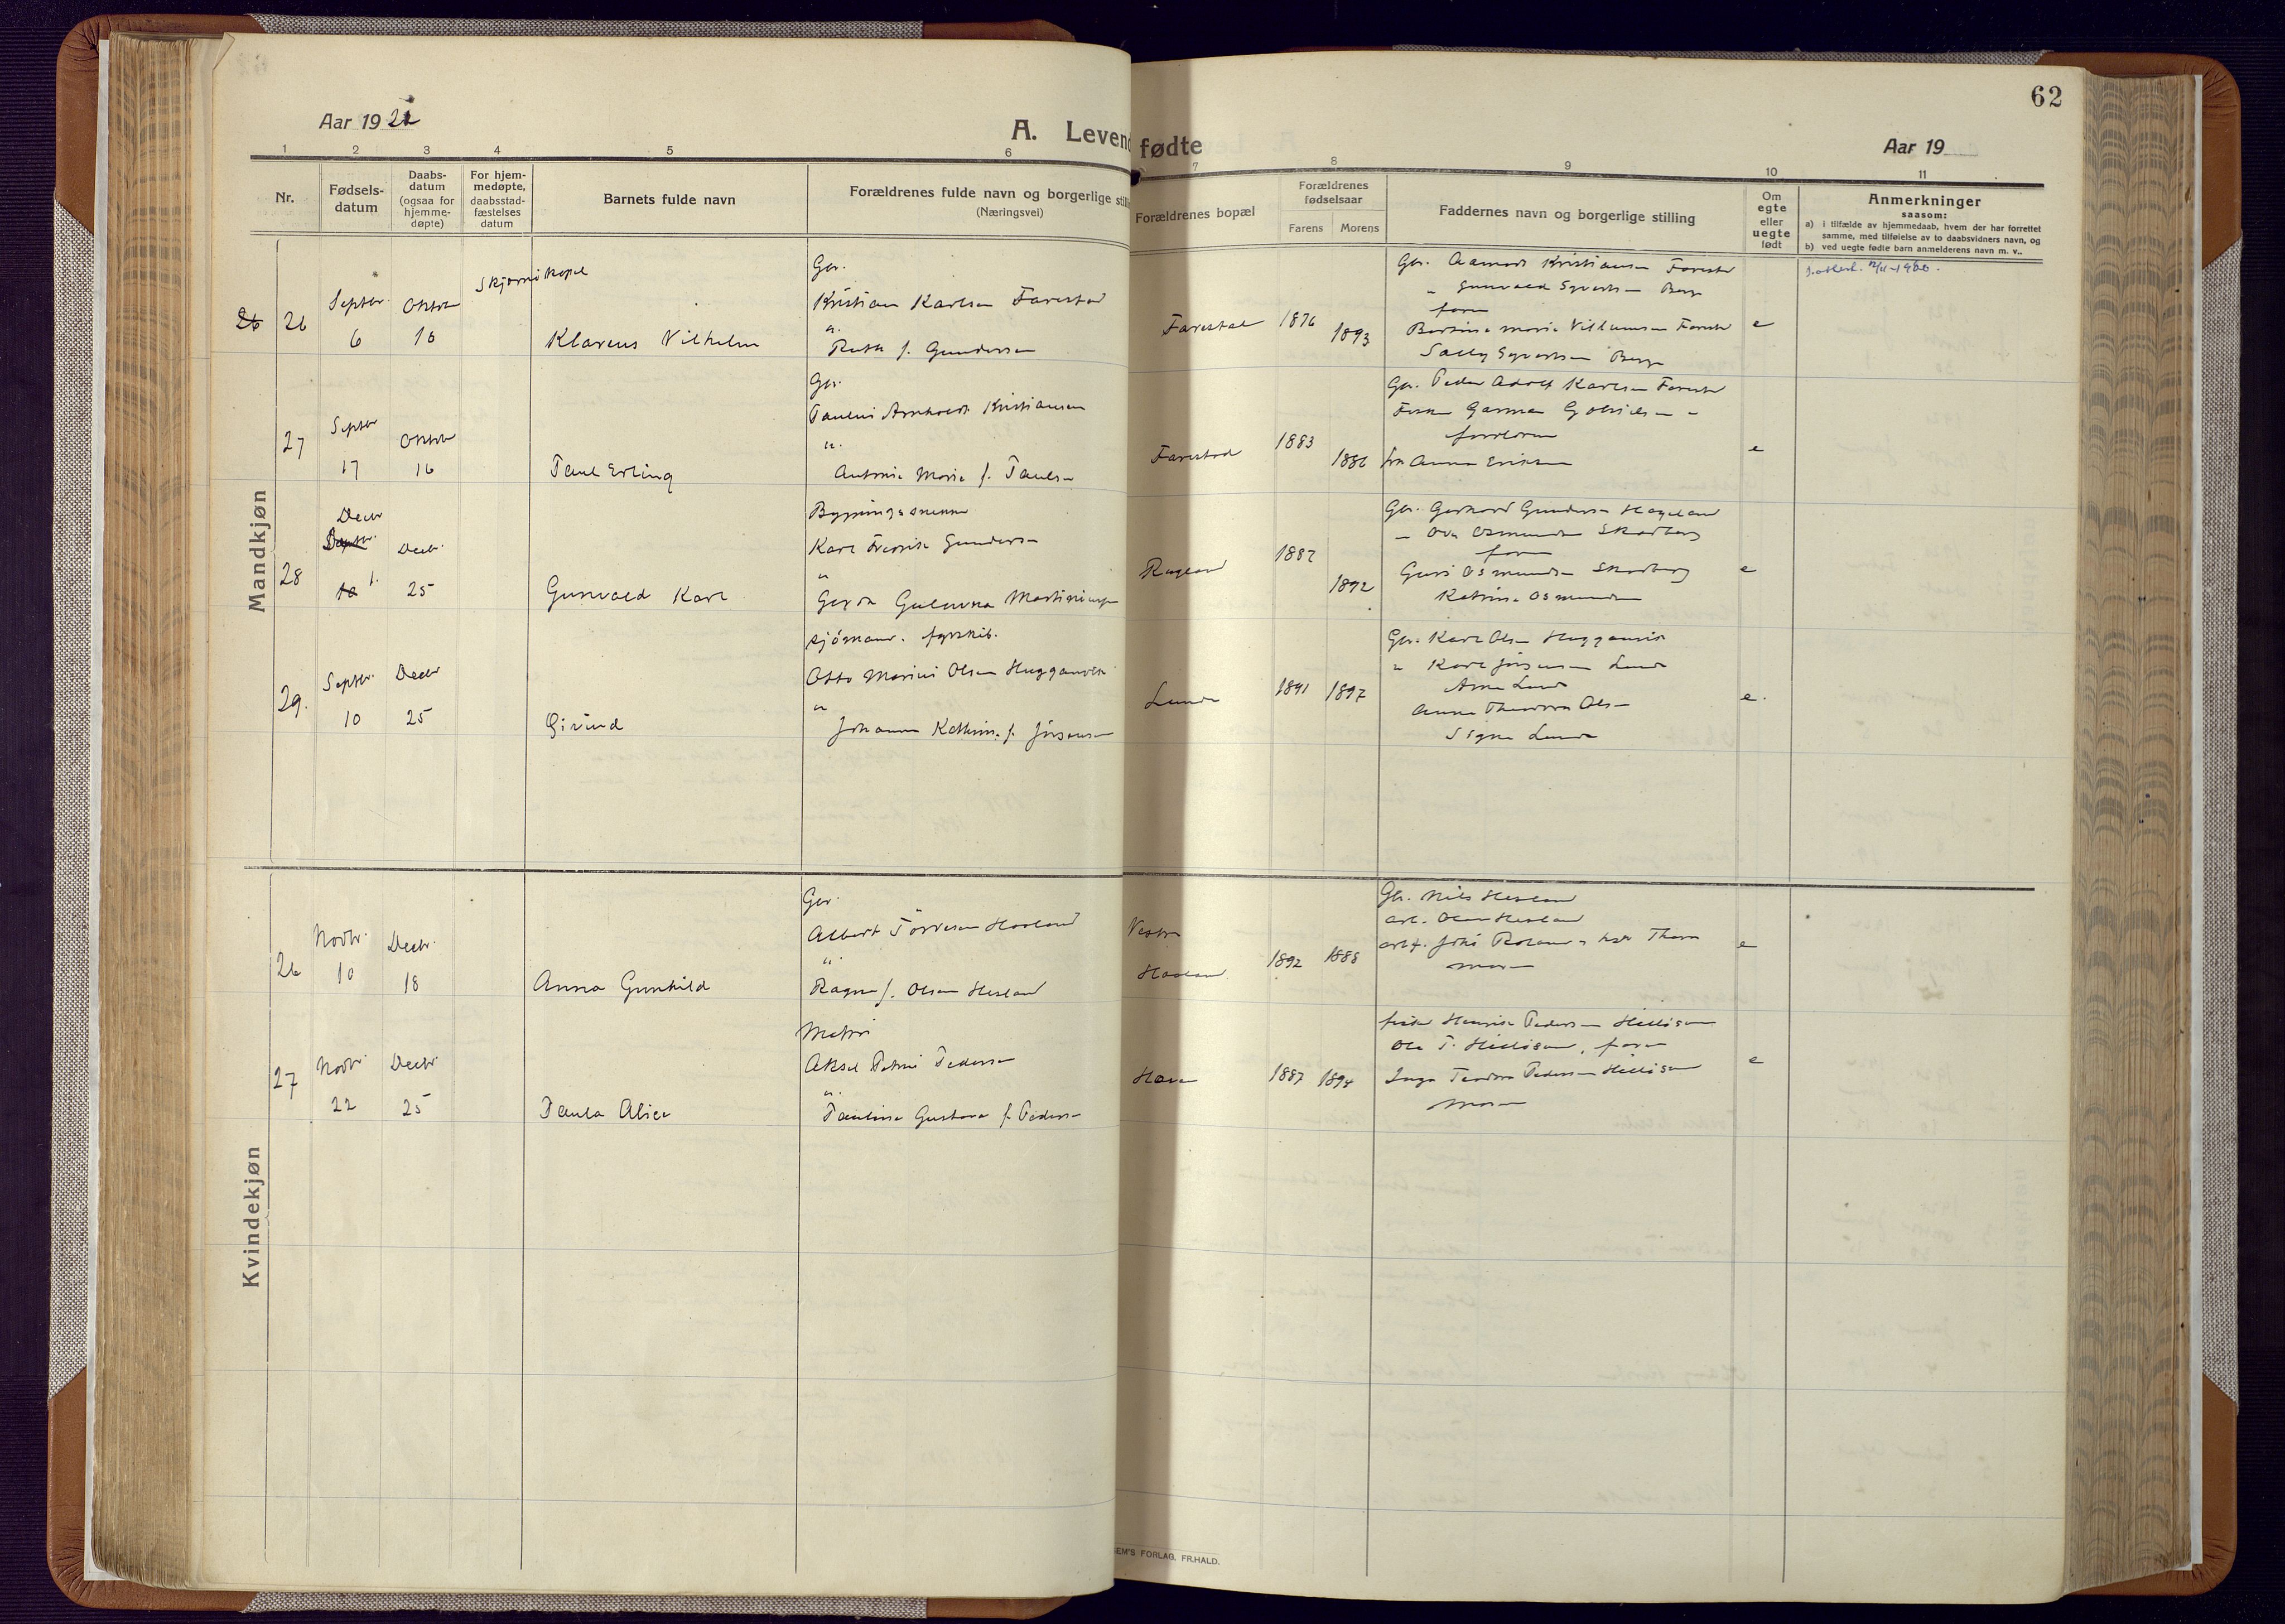 62
Aar 1921
A. Levend
fødte
Aar 19
1 2 3 4 5 6
7 8 9 10 11
Nr.
Fødsels-
datum
Daabs-
datum
(ogsaa for
hjemme-
døpte)
For hjem-
medøpte,
daabsstad-
fæstelses
datum
Barnets fulde navn
Forældrenes fulde navn og borgerlige still
(Næringsvei)
Forældrenes bopæl
Forældrenes
fødselsaar
Farens Morens
Faddernes navn og borgerlige stilling
Om
egte
eller
uegte
født
Anmerkninger
saasom:
a) i tilfælde av hjemmedaab, hvem der har forrettet
samme, med tilføielse av to daabsvidners navn, og
b) ved uegte fødte barn anmelderens navn m. v..
Mandkjøn
26 26
Septbr
6
Oktbr
16
Klareus Vilhelm
Gbr.
Kristian Karlsen Farestad
"
Ruth f. Gundersen
Farestad
1876
1893
Gbr. Aamodt Kristiansen Farestad
" Gunvald Syvertsen Berge
faren
Bertine Marie Villumsen Farestad
Sally Syvertsen Berge
e
27
Septbr
17
Oktbr
16
Paul Erling
Gbr.
Paulus Arnholdt Kristiansen
"
Antonie Marie f. Paulsen
Farestad
1883
1886
Gbr. Peder Adolf Karlsen Farestad
Fisker Garman Gabrielsen "
forældrene
frk Anna Eriksen
e
28
Decbr
1.
Decbr.
25
Gunvald Karl
Karl Fredrik Gundersen
"
Gerda Gulovna
1887
1892
Gbr. Gerhard Gundersen Hageland
" Ove Osmundsen Skarberg
faren
Guri Osmundsen Skarberg
Katrine Osmundsen
e
29.
Septbr.
10
Decbr
25
Eivind
sjømand. fyrskib.
Otto Marius Olsen Huggenvik
"
Johanne Kathrine f. Jörgensen
Lunde
1891
1897
Gbr. Karl Olsen Huggenvik
" Karl Jörgensen Lunde
Arne Lunde
Anne Theodora Olsen
Signe Lunde
e.
Kvindekjøn
26
Novbr.
10
Decbr.
18
Anna Gunhild
Gbr.
Albert Törresen Haaland
"
Ragna f. Olsen Hesland
Vestre
Haaland
1892
1888
Gbr. Nils Hesland
arb. Olav Hesland
moren
e
27
Novbr.
22
Decbr
25
Paula Alice
Aksel Petrus Pedersen
"
Pauline Gustava f. Pedersen
1887
1894
fisker Henrik Pedersen Hilløsund
Ole T. Hilløsund, faren
Inga Teodora Pedersen Hilløsund
moren
e
EM'S FORLAG, FR.HALD.